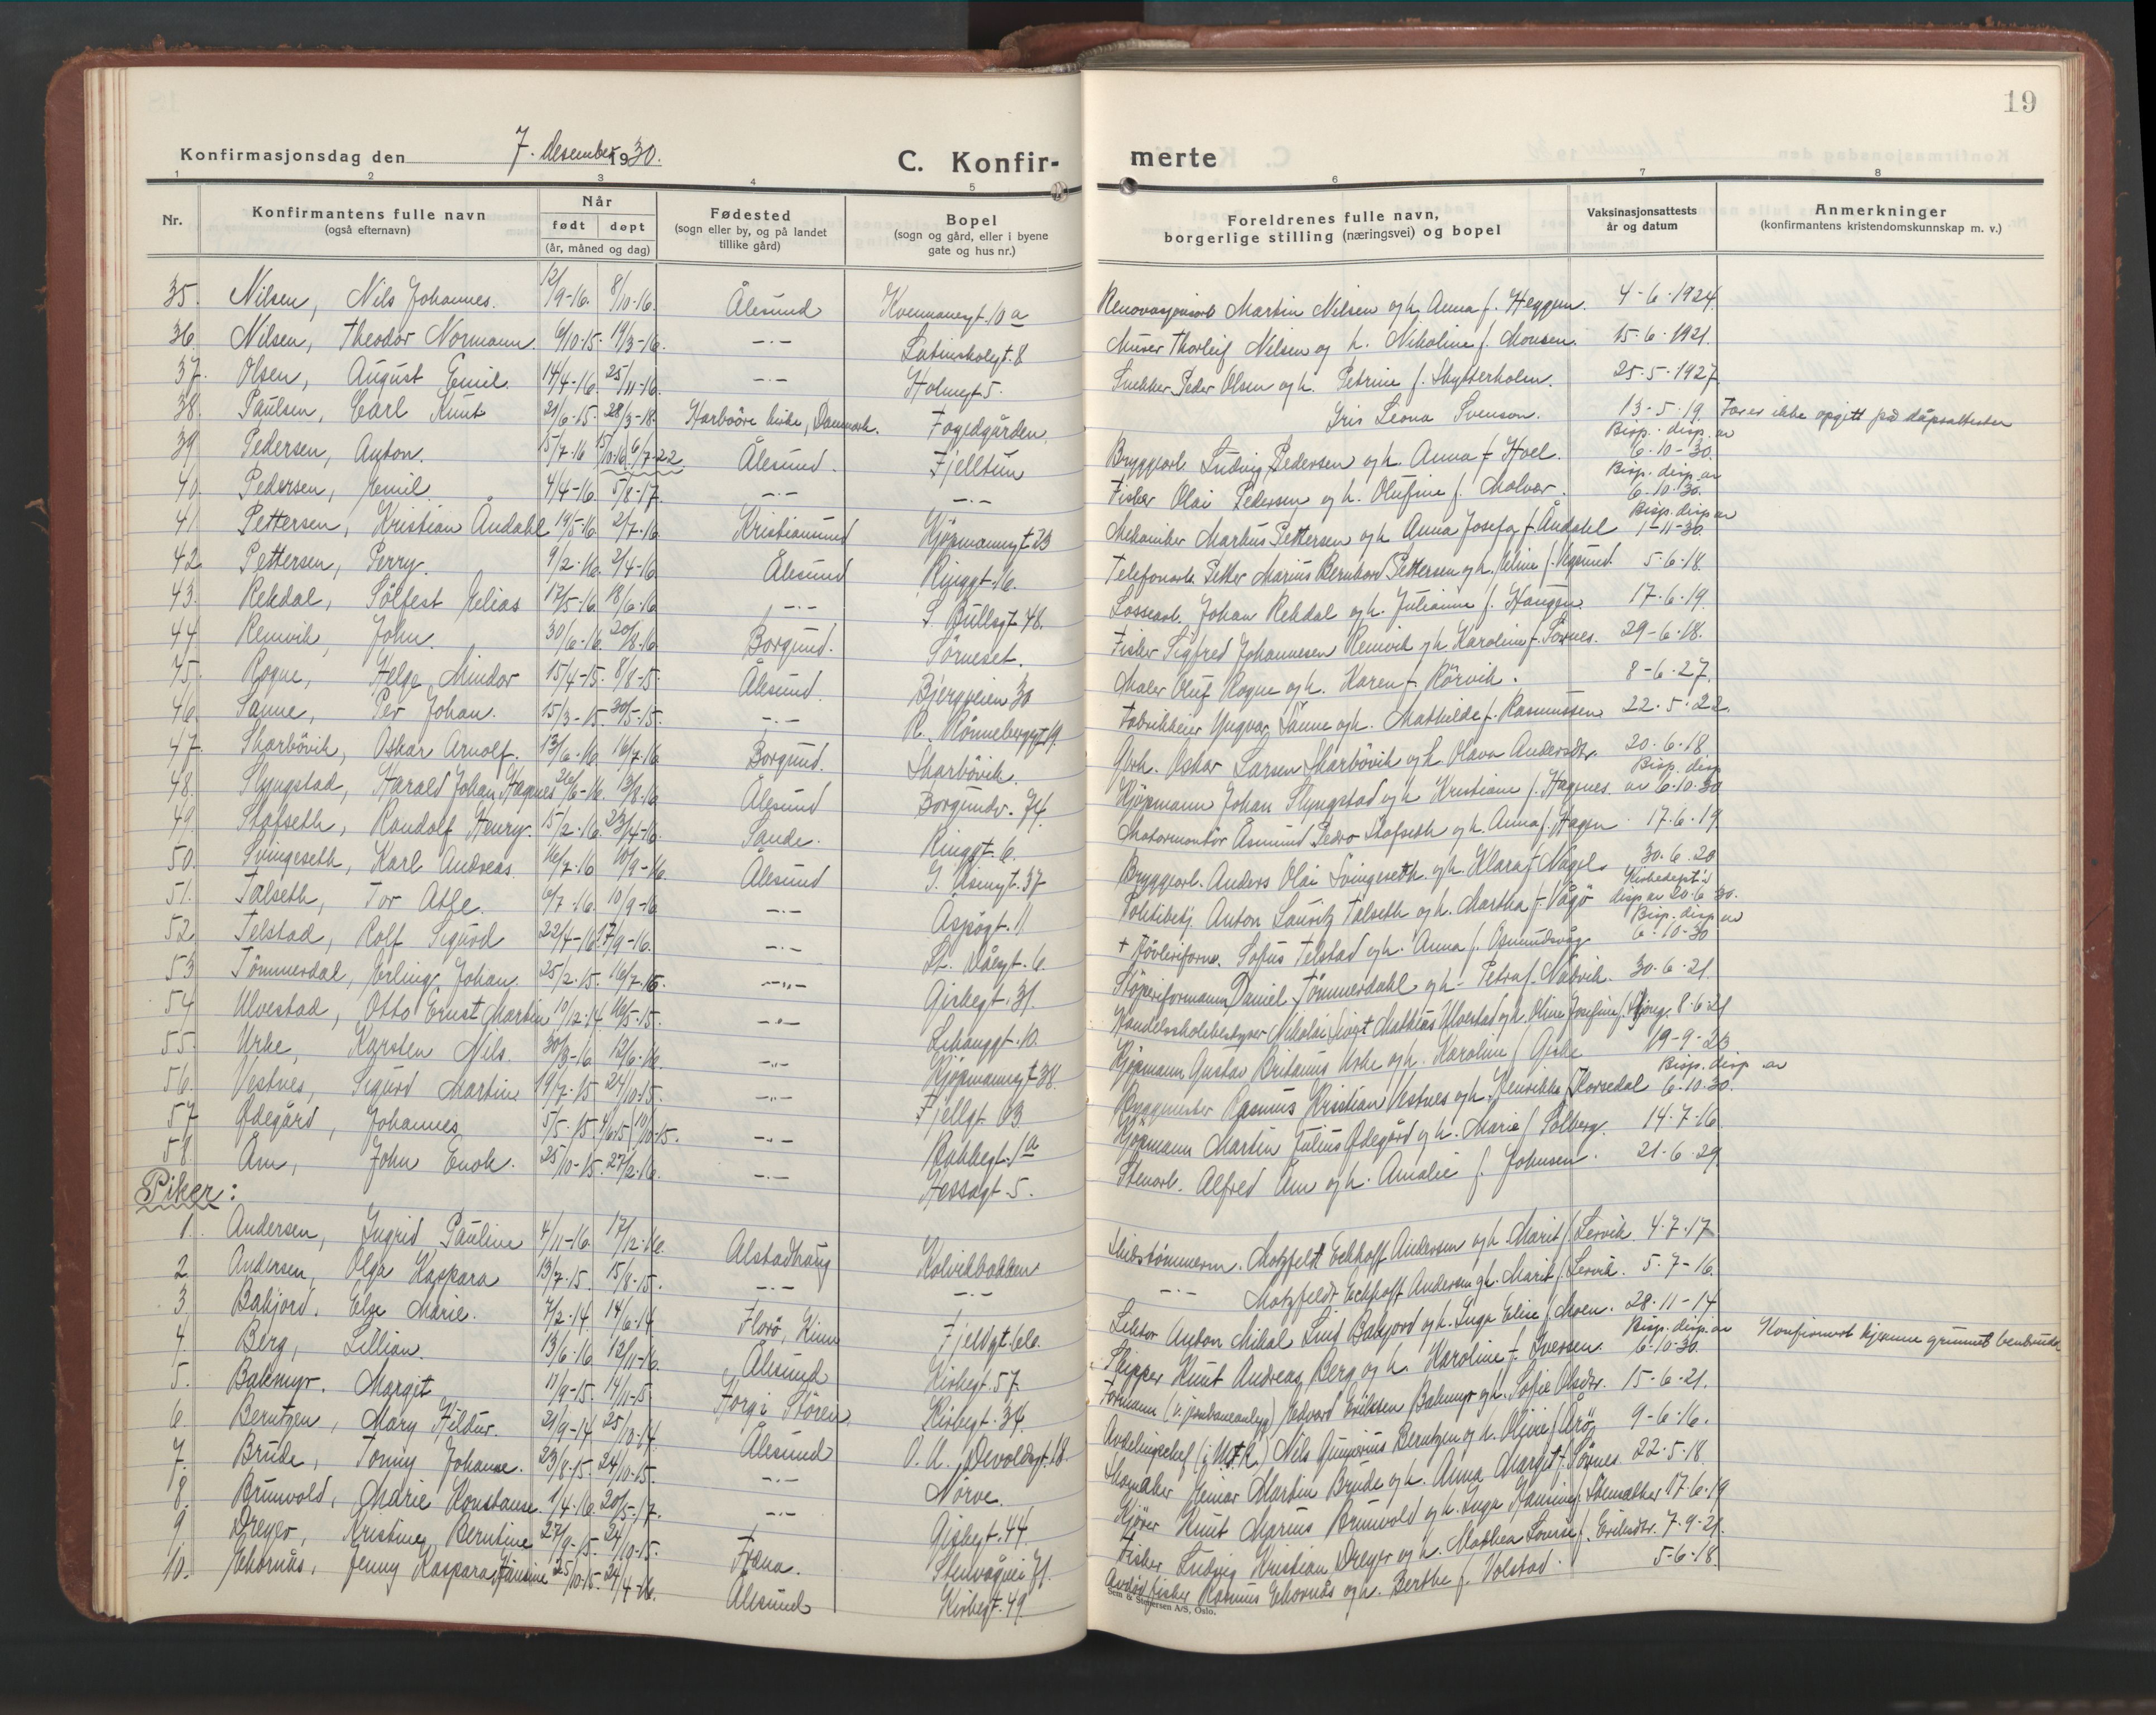 19
Konfirmasjonsdag den 7. desember 1930.
C. Konfirmerte
1 2 3 4 5 6 7 8
Nr. Konfirmantens fulle navn (også efternavn) Når født døpt (år, måned og dag) Fødested (sogn eller by, og på landet tillike gård) Bopel (sogn og gård, eller i byene gate og hus nr.) Foreldrenes fulle navn, borgerlige stilling (næringsvei) og bopel Vaksinasjonsattests år og datum Anmerkninger (konfirmantens kristendomskunnskap m. v.)
35. Nilsen, Nils Johannes. 12/9-16. 8/10-16. Ålesund 10 a Martin Nilsen og h. Anna f. Heggem. 4-6-1924.
36. Nilsen, Theodor Normann. 6/10-15. 19/3-16. -.- Latinskolegt. 8 Murer Thorleif Nilsen og h. Nikoline f. Monsen. 15-6-1921.
37. Olsen, August Emil. 14/4-16. 25/11-16. -.- Holmegt 5. Snekker Peder Olsen og h. Petrine f. Skytterholm. 25-5-1927
38. Paulsen, Carl Knut 21/6-15. 28/3-18. Harboöre kirke, Danmark. Fogedgården. Iris Leona Svenson. 13-5-19. Far er ikke opgitt på dåpsattesten
39 Pedersen, Anton. 15/7-16 15/10-16 6/7-22 Ålesund. Fjelltun Bryggearb. Ludvig Pedersen og h. Anna f. Hoel. Bisp. disp. av 6-10-30.
40. Pedersen, Emil. 4/4-16. 5/8-17. -.- -.- Fisker Olai Pedersen og h. Olufine f. Molvær. Bisp. disp. av 6-10-30.
41. Pettersen, Kristian Åndahl 19/5-16. 2/7-16 Kristiansund Kjöpmannsgt 23 Mekaniker Markus Pettersen og h. Anna Josefa f. Åndahl Bisp. disp av 1-11-30.
42. Pettersen, Perry. 9/2-16. 2/4-16 Ålesund Ringgt. 16. Telefonarb. Petter Marius Bernhard Pettersen og h. Eline f. Vegsund. 5-6-18.
43. Rekdal, Sölfest Elias 17/5-16. 18/6-16 -.- S. Bullsgt. 48. Lossearb. Johan Rekdal og h. Julianne f. Haugen. 17-6-19.
44. Remvik, John. 30/6-16. 20/8-16 Borgund. Sörneset. Fisker Sigfred Johannesen Remvik og h. Karoline f. Sornes. 29-6-18.
45. Rogne, Helge Mindor 15/4-15. 8/8-15. Ålesund. Bjerggeien 30 Maler Oluf Rogne og h. Karen f. Rörvik. 8-6-27.
46. Sanne, Per Johan. 15/3-15. 30/5-15. -.- R. Rönnebergsgt 19. Fabrikkeier Yngvar Sanne og h. Mathilde f. Rasmussen. 22-5-22.
47. Skarbövik, Oskar Arnolf. 13/6-16. 16/7-16 Borgund. Skarbövik. Oskar Larsen Skarbövik og h. Olava Andersdtr. 20-6-18.
48. Slyngstad, Harald Johan Hagnes 26/6-16. 13/8-16 Ålesund Borgundv. 74. Kjöpmann Johan Slyngstad og h. Kristiane f. Hagnes. Bisp. disp av 6.10.30
49. Stafseth, Randolf Henry. 15/2-16. 23/4-16. Sande. Ringgt. 6. Motormontör Åsmund Pedro Stafseth og h. Anna f. Hagen. 17-6-19
50. Svingeseth, Karl Andreas. 16/7-16 10/9-16. Ålesund J. Åsensgt. 37 Bryggearb. Anders Olai Svingeseth og h. Klara f. Nagel. 30.6.20
51. Talseth, Tor Atle. 6/7-16. 10/9-16 -.- Aspögt. 11. Politibetj. Anton Lauritz Talseth og h. Martha f. Vågö Kirkedept's disp av 20-6-30.
52. Telstad, Rolf Sigurd 22/4-16 17/9-16. -.- St. Olavsgt. 6. + Hövleriform. Sofus Telstad og h. Anna f. Osmundsvåg. Bisp. disp av 6-10-30
53. Tömmerdal, Erling Johan. 25/2-15. 16/7-15. -.- Girbegt. 31. Stöperiformann Daniel Tömmerdahl og h. Petra f. Nakvik. 30-6-21.
54. Ulvestad, Otto Ernst Martin 10/2-14. 16/5-15. -.- 10. Handelsskolebestyrer Nikolai Sivert Mathias Ulvestad og h. Oline Josefine f. 8-6-21
55. Urke, Karsten Nils. 30/3-16. 12/6-16. -.- Kjöpmannsgt 38. Kjöpmann Gustav Britanus Urke og h. Karoline f. Giske 19-9-23
56. Vestnes, Sigurd Martin 19/7-15 24/10-15. -.- Fjellgt. 63. Byggmester Rasmus Kristian Vestnes og h. Henrikke f. Korsedal Bisp. disp av 6-10-30.
57. Ödegård, Johannes 5/5-15. 4/6-15 10/10-15. -.- Bakkegt. 1 a Kjöpmann Martin Julius Ödegård og h. Marie f. Solberg. 14-7-16.
58. Åm, John Enok. 25/10-15. 27/2-16. -.- Hessagt. 5. Stenarb. Alfred Åm og h. Amalie f. Johnsen. 21-6-29.
Piker:
1. Andersen, Ingrid Pauline 4/11-16. 17/12-16. Alstadhaug Kolvikbakken Skibstömmerm. Motzfeldt Eckhoff Andersen og h. Marit f. Lervik 4-7-17
2. Andersen, Olga Kaspara 13/7-15. 15/8-15. -.- -.- -.- Motzfeldt Eckhoff Andersen og h. Marit f. Lervik. 5-7-16.
3. Bakjord. Else Marie. 7/2-14. 14/6-14 Florö, Kinn Fjeldgt. Lektor Anton Mikal Lind Bakjord og h. Inga Elise f. Moen. 28-11-14
4. Berg, Lillian. 13/6-16. 12/11-16. Ålesund Kirkegt. 57. Skipper Knut Andreas Berg og h. Karoline f. Iversen. Bisp. disp. av 6-10-30. Konfirmert hjemme grunnet benbrudd
5. Bakmyr. Margit 11/9-15. 14/11-15 Horg i Stören Kirkegt. 34. Formann (v. jernbaneanlegg) Edvard Eriksen Bakmyr og h. Sofie Olsdtr. 15-6-21.
6. Berntzen, Mary Hildur. 21/9-14 25/10-14. Ålesund O. A. Devoldsgt. 18. Avdelingschef Nils Berntzen og h. Olivie f. Arö 9-6-16.
7. Brude, Tonny Johanne. 23/8-15. 24/10-15. -.- Nörve. Skomaker Einar Martin Brude og h. Anna Margit f. Sörnes. 22-5-18.
8. Brunvold, Marie Konstanse. 1/4-16. 20/5-17. -.- Girbegt. 44. Kjörer Knut Marius Brunvold og h. Inga Hansine f. 17-6-19
9. Dreyer, Kristine Berntine 27/9-15. 24/10-15. Fræna. Stenvågvei 71. Fisker Ludvig Kristian Dreyer og h. Mathea Lovise f. Eriksdtr. 7-9-21.
10. Ekornås, Jenny Kaspara Hansine 25/10-15. 24/4-16. Ålesund Kirkegt. 49. Avdöd fisker Rasmus Ekornås og h. Berthe f. Volstad. 5-6-18
Sem & Stenersen A/S, Oslo.